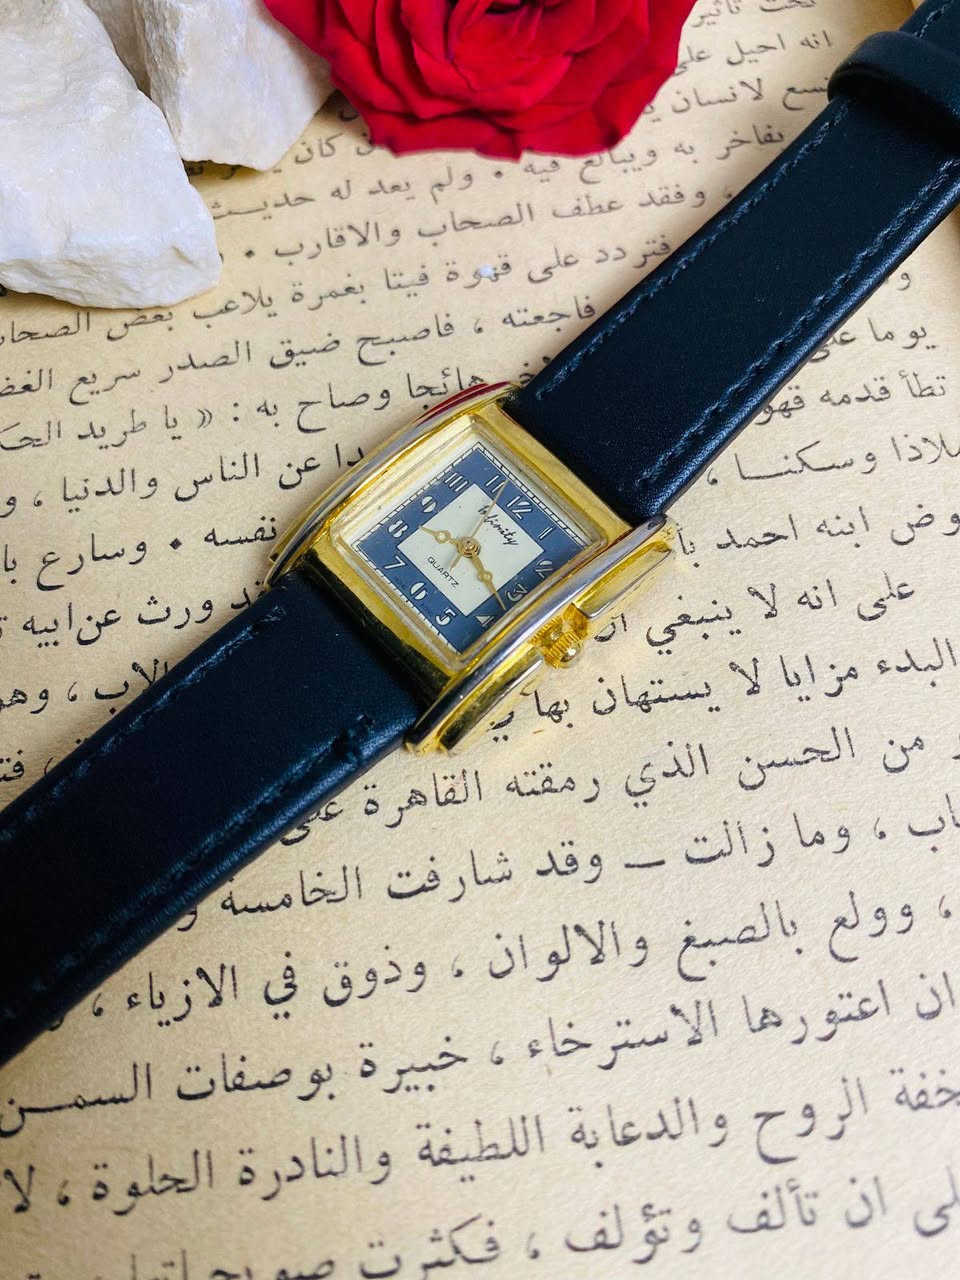 تحت تأثير
انه احيل على
لانسان
يفاخر به ويبالغ فيه . ولم يعد له حديث
، وفقد عطف الصحاب والاقارب .
فتردد على قهوة فيتا بغمرة يلاعب بعض
فاجعته ، فاصبح ضيق الصدر سريع
يوما على
هائجا وصاح به : « يا طريد
تطأ قدمه
عن الناس والدنيا ، و
ملاذا وسكنا ،
نفسه . وسارع
ابنه احمد
ورث عن ابيه
على انه لا ينبغي
، وهو
البدء مزايا لا يستهان بها
من الحسن الذي رمقته القاهرة على
، وما زالت — وقد شارفت الخامسة و
، وولع بالصبغ والالوان ، وذوق في الازياء ،
ان اعتورها الاسترخاء ، خبيرة بوصفات
خفة الروح والدعابة اللطيفة والنادرة الحلوة ، لا
ان تألف وتؤلف ، فكثرت
11 12 1 2 3 4 5 6 7 8 9 10
QUARTZ